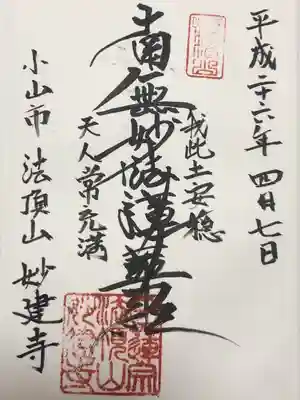 平成二十六年四月七日
我此土安穏
南無妙法蓮華経
天人常充満
小山市 法頂山 妙建寺